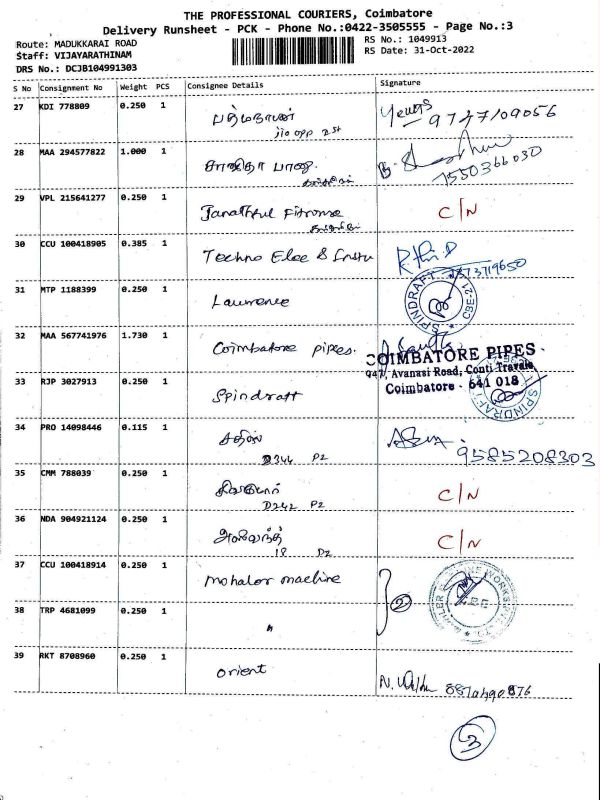 THE PROFESSIONAL COURIERS, Coimbatore
Delivery Runsheet - PCK - Phone No.:0422-3505555 - Page No.:3
Route: MADUKKARAI ROAD
RS No.: 1049913
Staff: VIJAYARATHINAM
RS Date: 31-Oct-2022
DRS No.: DCJB104991303
S No Consignment No Weight PCS Consignee Details Signature
27 KDI 778809 0.250 1 பத்மநாபன் 9747109056
jio opp 2st
28 MAA 294577822 1.000 1
7550366030
29 VPL 215641277 0.250 1 C/N
30 CCU 100418905 0.385 1 Techno Elec & Instru
31 MTP 1188399 0.250 1 Lawrence SPINDRAFT CBE-21
32 MAA 567741976 1.730 1 Coimbatore pipes.
COIMBATORE PIPES
947, Avanasi Road, Conti Travels,
Coimbatore - 641 018
33 RJP 3027913 0.250 1 Spindraft
34 PRO 14098446 0.115 1 9585208303
D344 P2
35 CMM 788039 0.250 1 C/N
D242 P2
36 NDA 904921124 0.250 1 C/N
18 P2
37 CCU 100418914 0.250 1 mohaler machine
2
38 TRP 4681099 0.250 1 "
39 RKT 8708960 0.250 1 orient
3